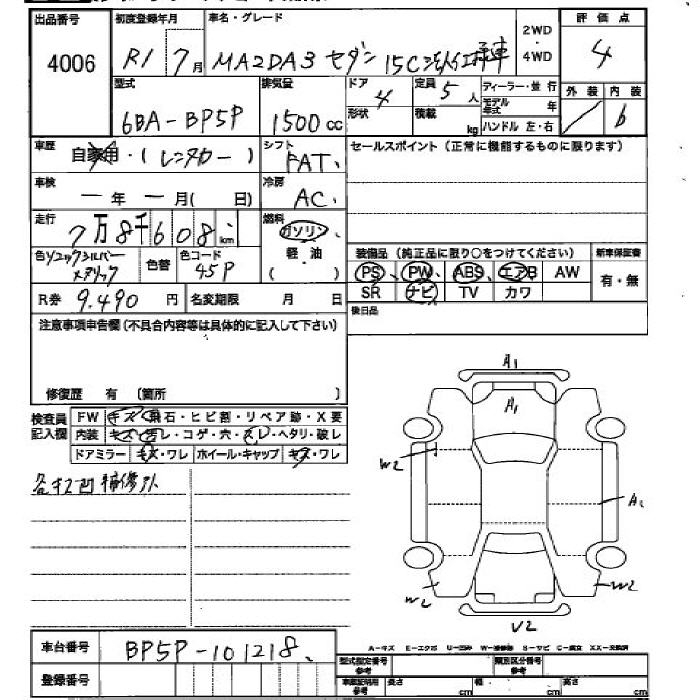 出品番号 初度登録年月 車名・グレード 2WD 4WD 評価点
4006 R1 7月 MAZDA3 セダン 15C 4
型式 排気量 ドア 定員 ディーラー・並行 外装 内装
6BA-BP5P 1500cc 4 5人 モデル年式 年 b
形状 積載 kg ハンドル 左・右
車歴 自家用・(レンタカー) シフト FAT セールスポイント（正常に機能するものに限ります）
車検 ー年 ー月( 日) 冷房 AC
走行 7万8千608 km 燃料 ガソリン、軽油 ( )
装備品（純正品に限り○をつけてください） 新車保証書
色 ソニックシルバーメタリック 色替 色コード 45P PS PW ABS エアB AW 有・無
R券 9.490円 名変期限 月 日 SR ナビ TV カワ
注意事項申告欄（不具合内容等は具体的に記入して下さい） 後日品
修復歴 有 〔箇所 〕
検査員記入欄 FW キズ・飛石・ヒビ割・リペア跡・X要
内装 キズ・汚レ・コゲ・穴・スレ・ヘタリ・破レ
ドアミラー キズ・ワレ ホイール・キャップ キズ・ワレ
各キズ凹 補修外
A1
A1
W2
A1
W2
W2
V2
A-キズ E-エクボ U-凹み W-補修跡 S-サビ C-腐食 XX-交換済
車台番号 BP5P-101218
登録番号
型式指定番号 参考 類別区分番号 参考
車庫証明用 参考 長さ cm 幅 cm 高さ cm